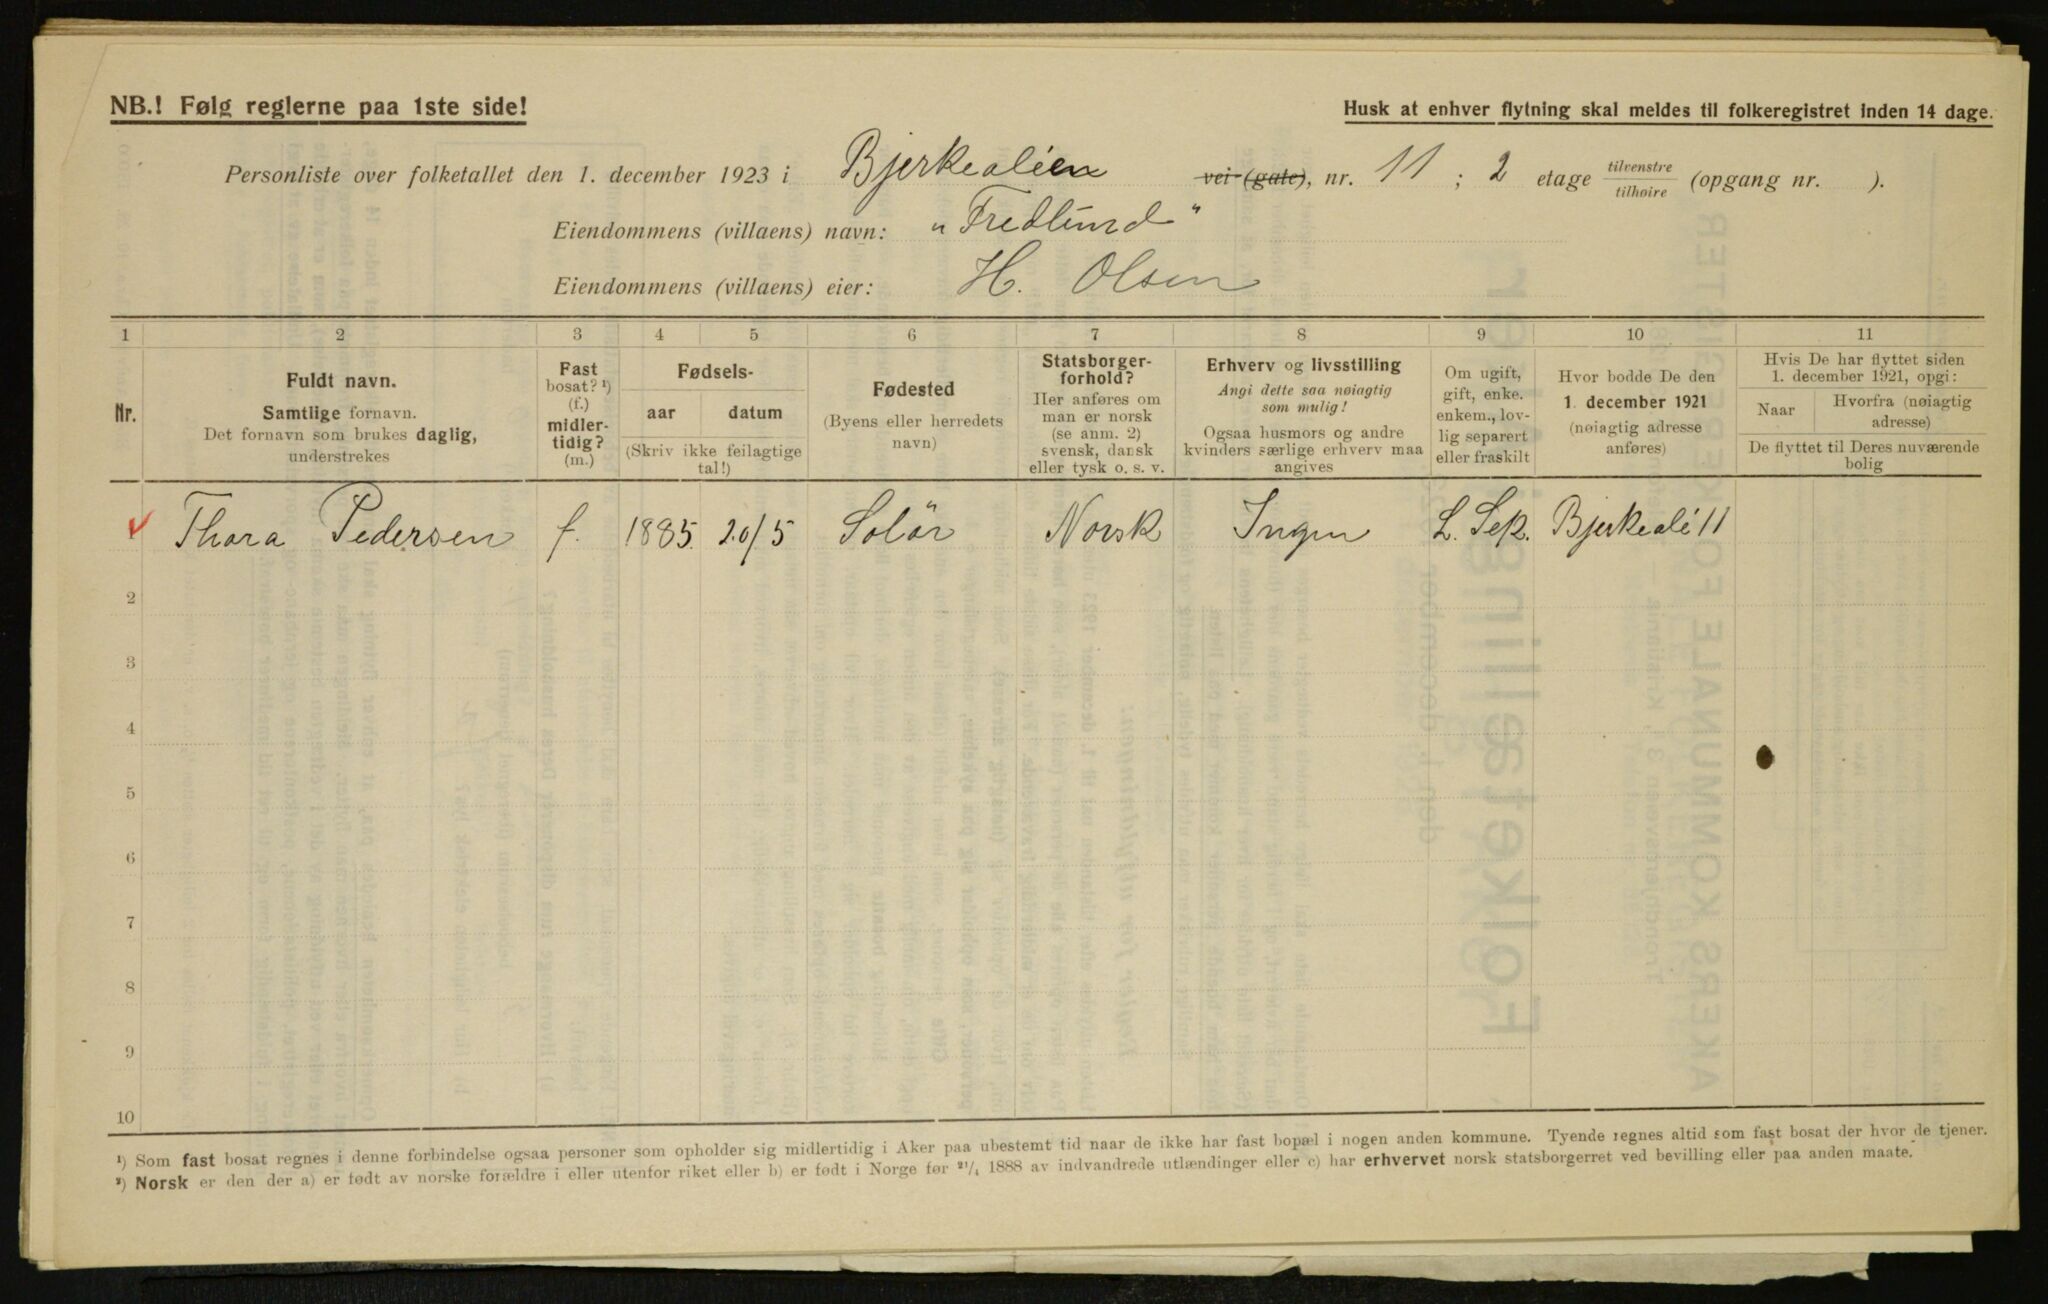 NB.! Følg reglerne paa 1ste side!
Husk at enhver flytning skal meldes til folkeregistret inden 14 dage.
Personliste over folketallet den 1. december 1923 i Bjerkealéen vei (gate), nr. 11 ; 2 etage tilvenstre tilhøire (opgang nr. ).
Eiendommens (villaens) navn: „Fredlund"
Eiendommens (villaens) eier: H. Olsen
1 2 3 4 5 6 7 8 9 10 11
Nr.
Fuldt navn.
Samtlige fornavn.
Det fornavn som brukes daglig,
understrekes
Fast
bosat? ¹)
(f.)
midler-
tidig?
(m.)
Fødsels-
aar datum
(Skriv ikke feilagtige
tal!)
Fødested
(Byens eller herredets
navn)
Statsborger-
forhold?
Her anføres om
man er norsk
(se anm. 2)
svensk, dansk
eller tysk o. s. v.
Erhverv og livsstilling
Angi dette saa nøiagtig
som mulig!
Ogsaa husmors og andre
kvinders særlige erhverv maa
angives
Om ugift,
gift, enke.
enkem., lov-
lig separert
eller fraskilt
Hvor bodde De den
1. december 1921
(nøiagtig adresse
anføres)
Hvis De har flyttet siden
1. december 1921, opgi:
Naar
Hvorfra (nøiagtig
adresse)
De flyttet til Deres nuværende
bolig
1 Thora Pedersen f. 1885. 20/5 Solör Norsk Ingen L. Sep. Bjerkealé 11
2
3
4
5
6
7
8
9
10
¹) Som fast bosat regnes i denne forbindelse ogsaa personer som opholder sig midlertidig i Aker paa ubestemt tid naar de ikke har fast bopæl i nogen anden kommune. Tyende regnes altid som fast bosat der hvor de tjener.
²) Norsk er den der a) er født av norske forældre i eller utenfor riket eller b) er født i Norge før ²¹/₄ 1888 av indvandrede utlændinger eller c) har erhvervet norsk statsborgerret ved bevilling eller paa anden maate.